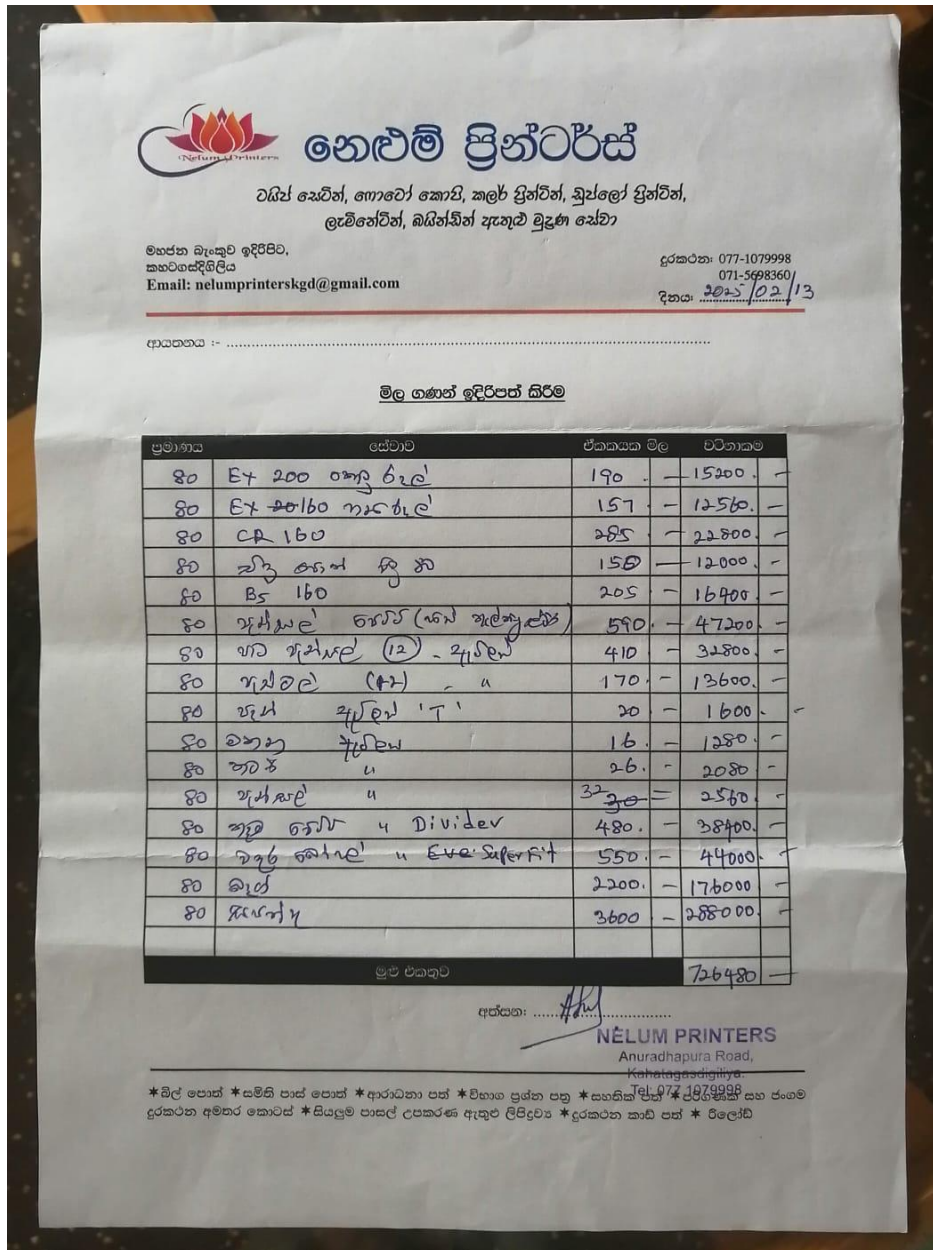 Nelum Printers
නෙළුම් ප්‍රින්ටර්ස්
ටයිප් සෙටින්, ෆොටෝ කොපි, කලර් ප්‍රින්ටින්, ඩුප්ලෝ ප්‍රින්ටින්,
ලැමිනේටින්, බයින්ඩින් ඇතුළු මුද්‍රණ සේවා
මහජන බැංකුව ඉදිරිපිට,
කහටගස්දිගිලිය
Email: nelumprinterskgd@gmail.com
දුරකථන: 077-1079998
071-5698360
දිනය: 2025/02/13
ආයතනය :-
මිල ගණන් ඉදිරිපත් කිරීම
ප්‍රමාණය සේවාව ඒකකයක මිල වටිනාකම
80 EX 200 රූල් 190 . — 15200. —
80 EX 160 රූල් 157 — 12560. —
80 CR 160 285 — 22800. —
80 150 — 12000. —
80 B5 160 205 — 16400. —
80 පැන්සල් 590. — 47200. —
80 පාට පැන්සල් (12) - ඇට්ලස් 410 — 32800. —
80 පැස්ටල් (12) - " 170. — 13600. —
80 පෑන් ඇට්ලස් 'T' 20 — 1600. —
80 මකන ඇට්ලස් 16. — 1280. —
80 කටර් " 26. — 2080 —
80 පැන්සල් " 32 30 = 2560. —
80 කෑම පෙට්ටි " Divider 480. — 38400. —
80 වතුර බෝතල් " Eve SuperFit 550. — 44000. —
80 බෑග් 2200. — 176000 —
80 සපත්තු 3600 — 288000. —
මුළු එකතුව 726480 —
අත්සන:
NELUM PRINTERS
Anuradhapura Road,
Kahatagasdigiliya.
Tel: 077 1079998
✶බිල් පොත් ✶සමිති පාස් පොත් ✶ආරාධනා පත් ✶විභාග ප්‍රශ්න පත්‍ර ✶සහතික පත් ✶පරිගණක සහ ජංගම
දුරකථන අමතර කොටස් ✶සියලුම පාසල් උපකරණ ඇතුළු ලිපිද්‍රව්‍ය ✶දුරකථන කාඩ් පත් ✶ රීලෝඩ්